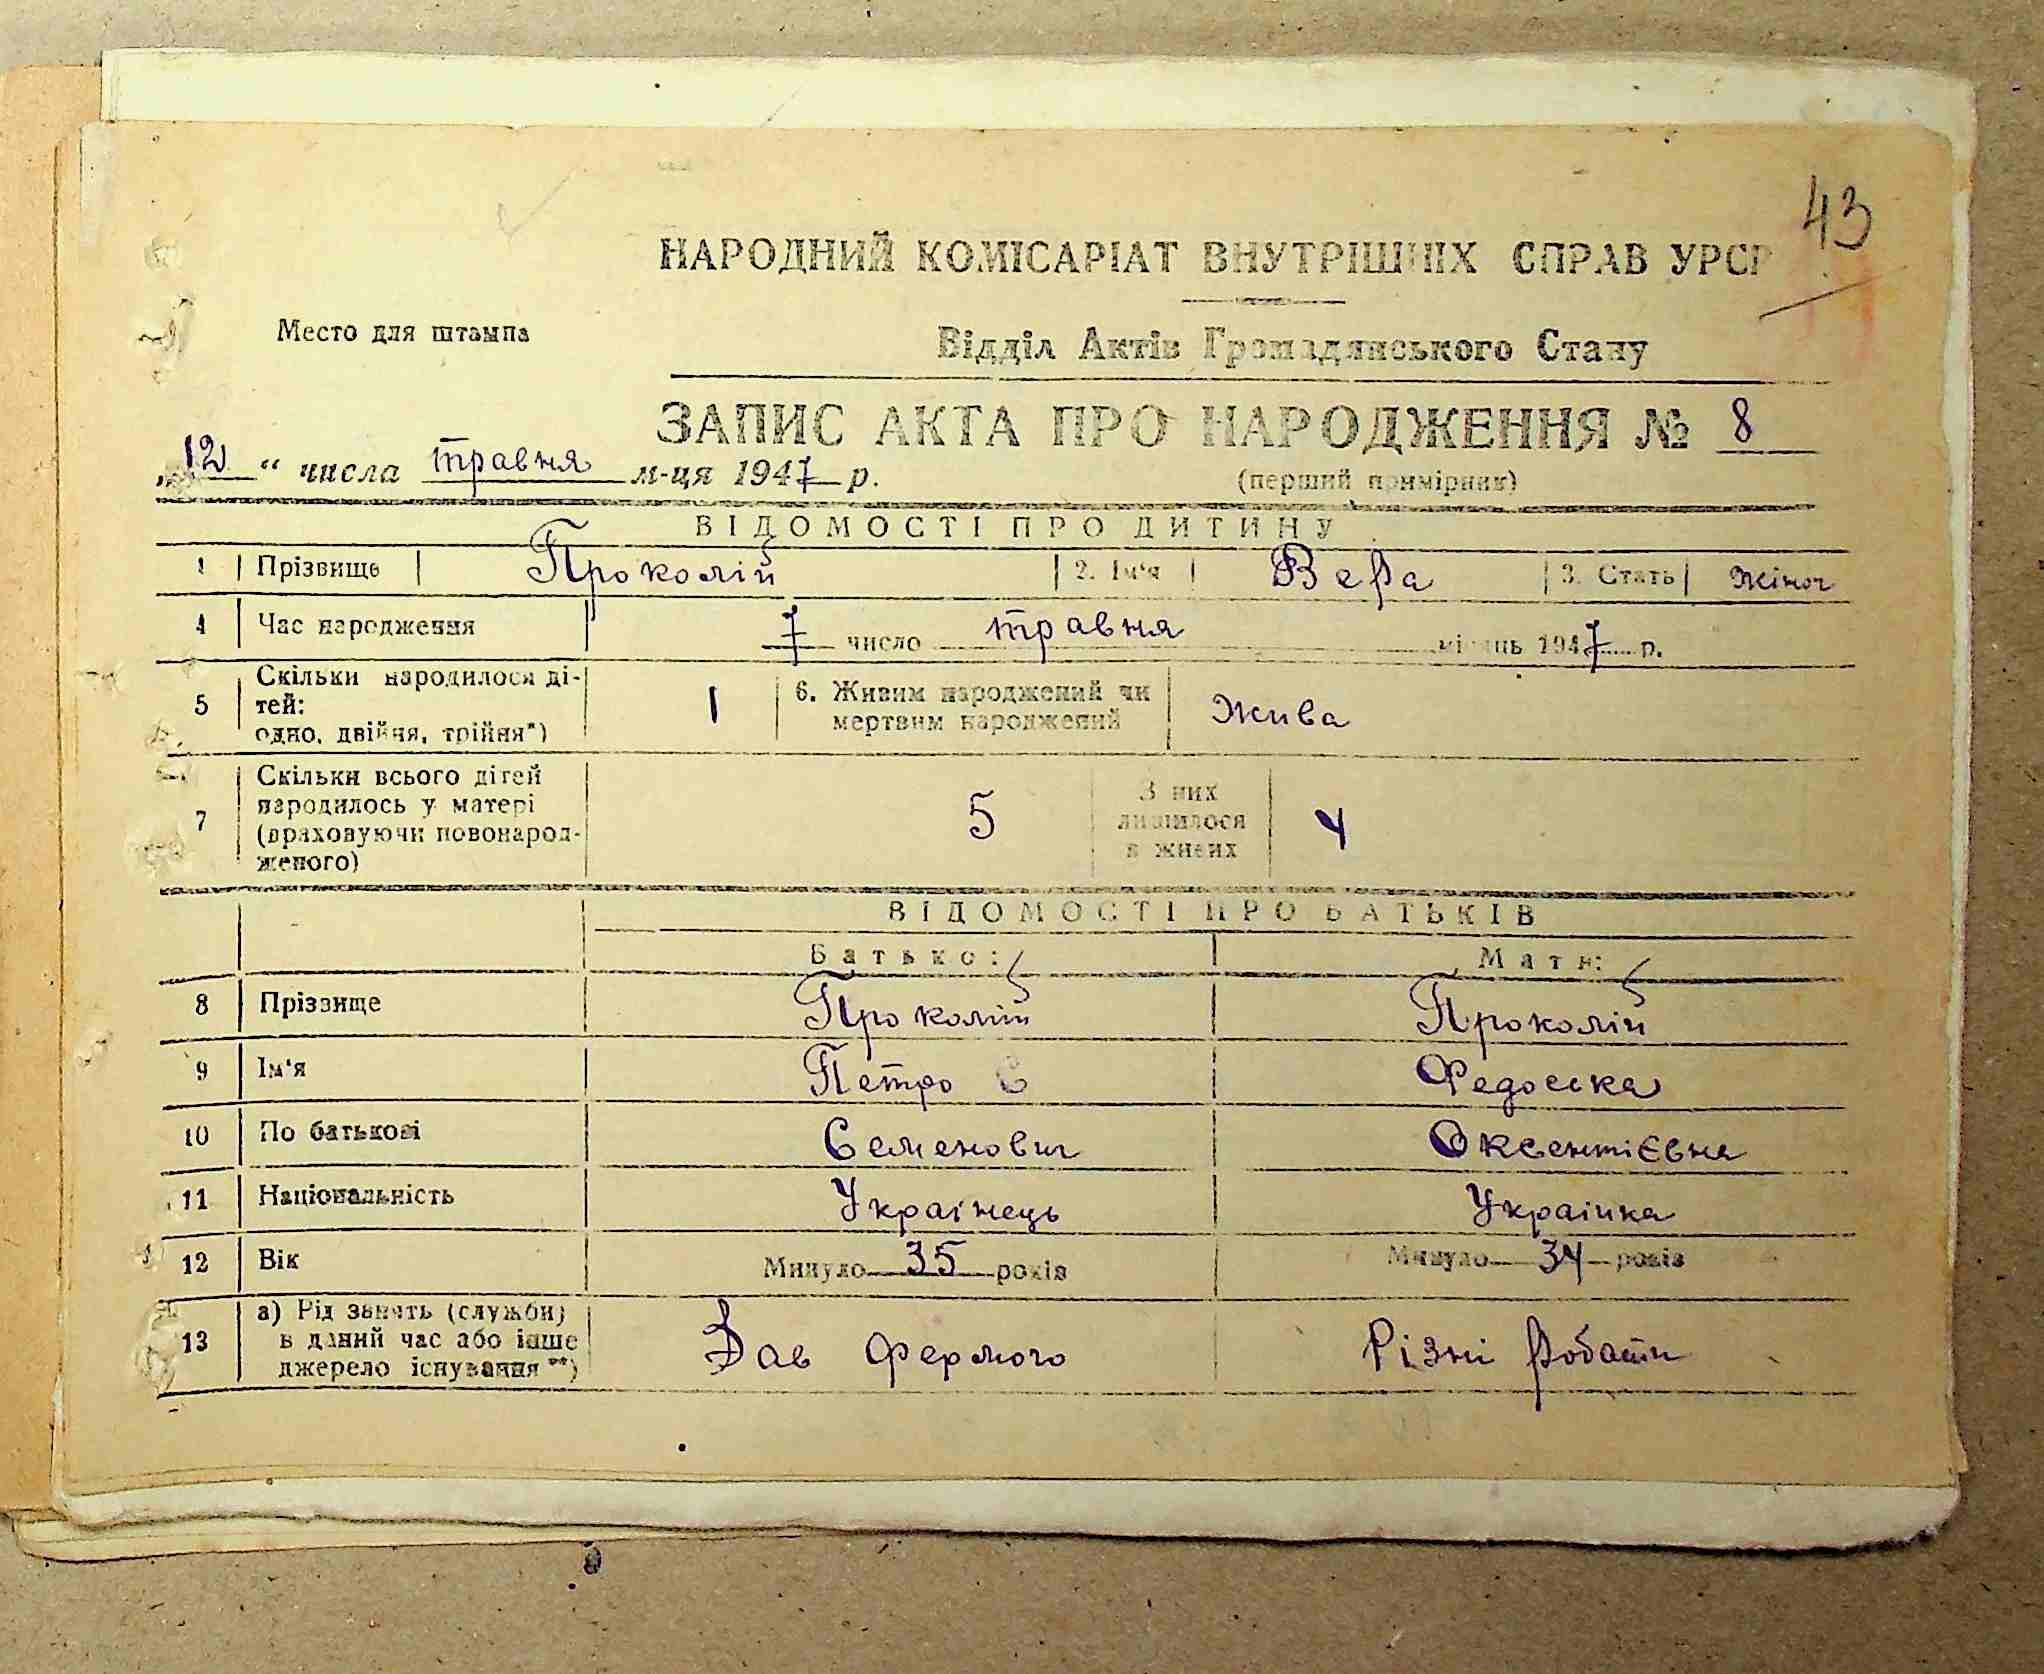 43
НАРОДНИЙ КОМІСАРІАТ ВНУТРІШНІХ СПРАВ УРСР
Место для штампа
Відділ Актів Громадянського Стану
ЗАПИС АКТА ПРО НАРОДЖЕННЯ № 8
„12“ числа травня м-ця 1947 р.
(перший примірник)
ВІДОМОСТІ ПРО ДИТИНУ
1 Прізвище Проколій 2. Ім'я Вера 3. Стать жіноч
4 Час народження 7 число травня місяць 1947 р.
5 Скільки народилося ді-
тей:
одно, двійня, трійня*) 1 6. Живим народжений чи
мертвим народжений Жива
7 Скільки всього дітей
народилось у матері
(враховуючи новонарод-
женого) 5 З них
лишилося
в живих 4
ВІДОМОСТІ ПРО БАТЬКІВ
Батько: Мати:
8 Прізвище Проколій Проколій
9 Ім'я Петро Федоска
10 По батькові Семенович Оксентієвна
11 Національність Українець Українка
12 Вік Минуло 35 років Минуло 34 років
13 а) Рід занять (служби)
в даний час або інше
джерело існування **) Зав фермого Різні роботи